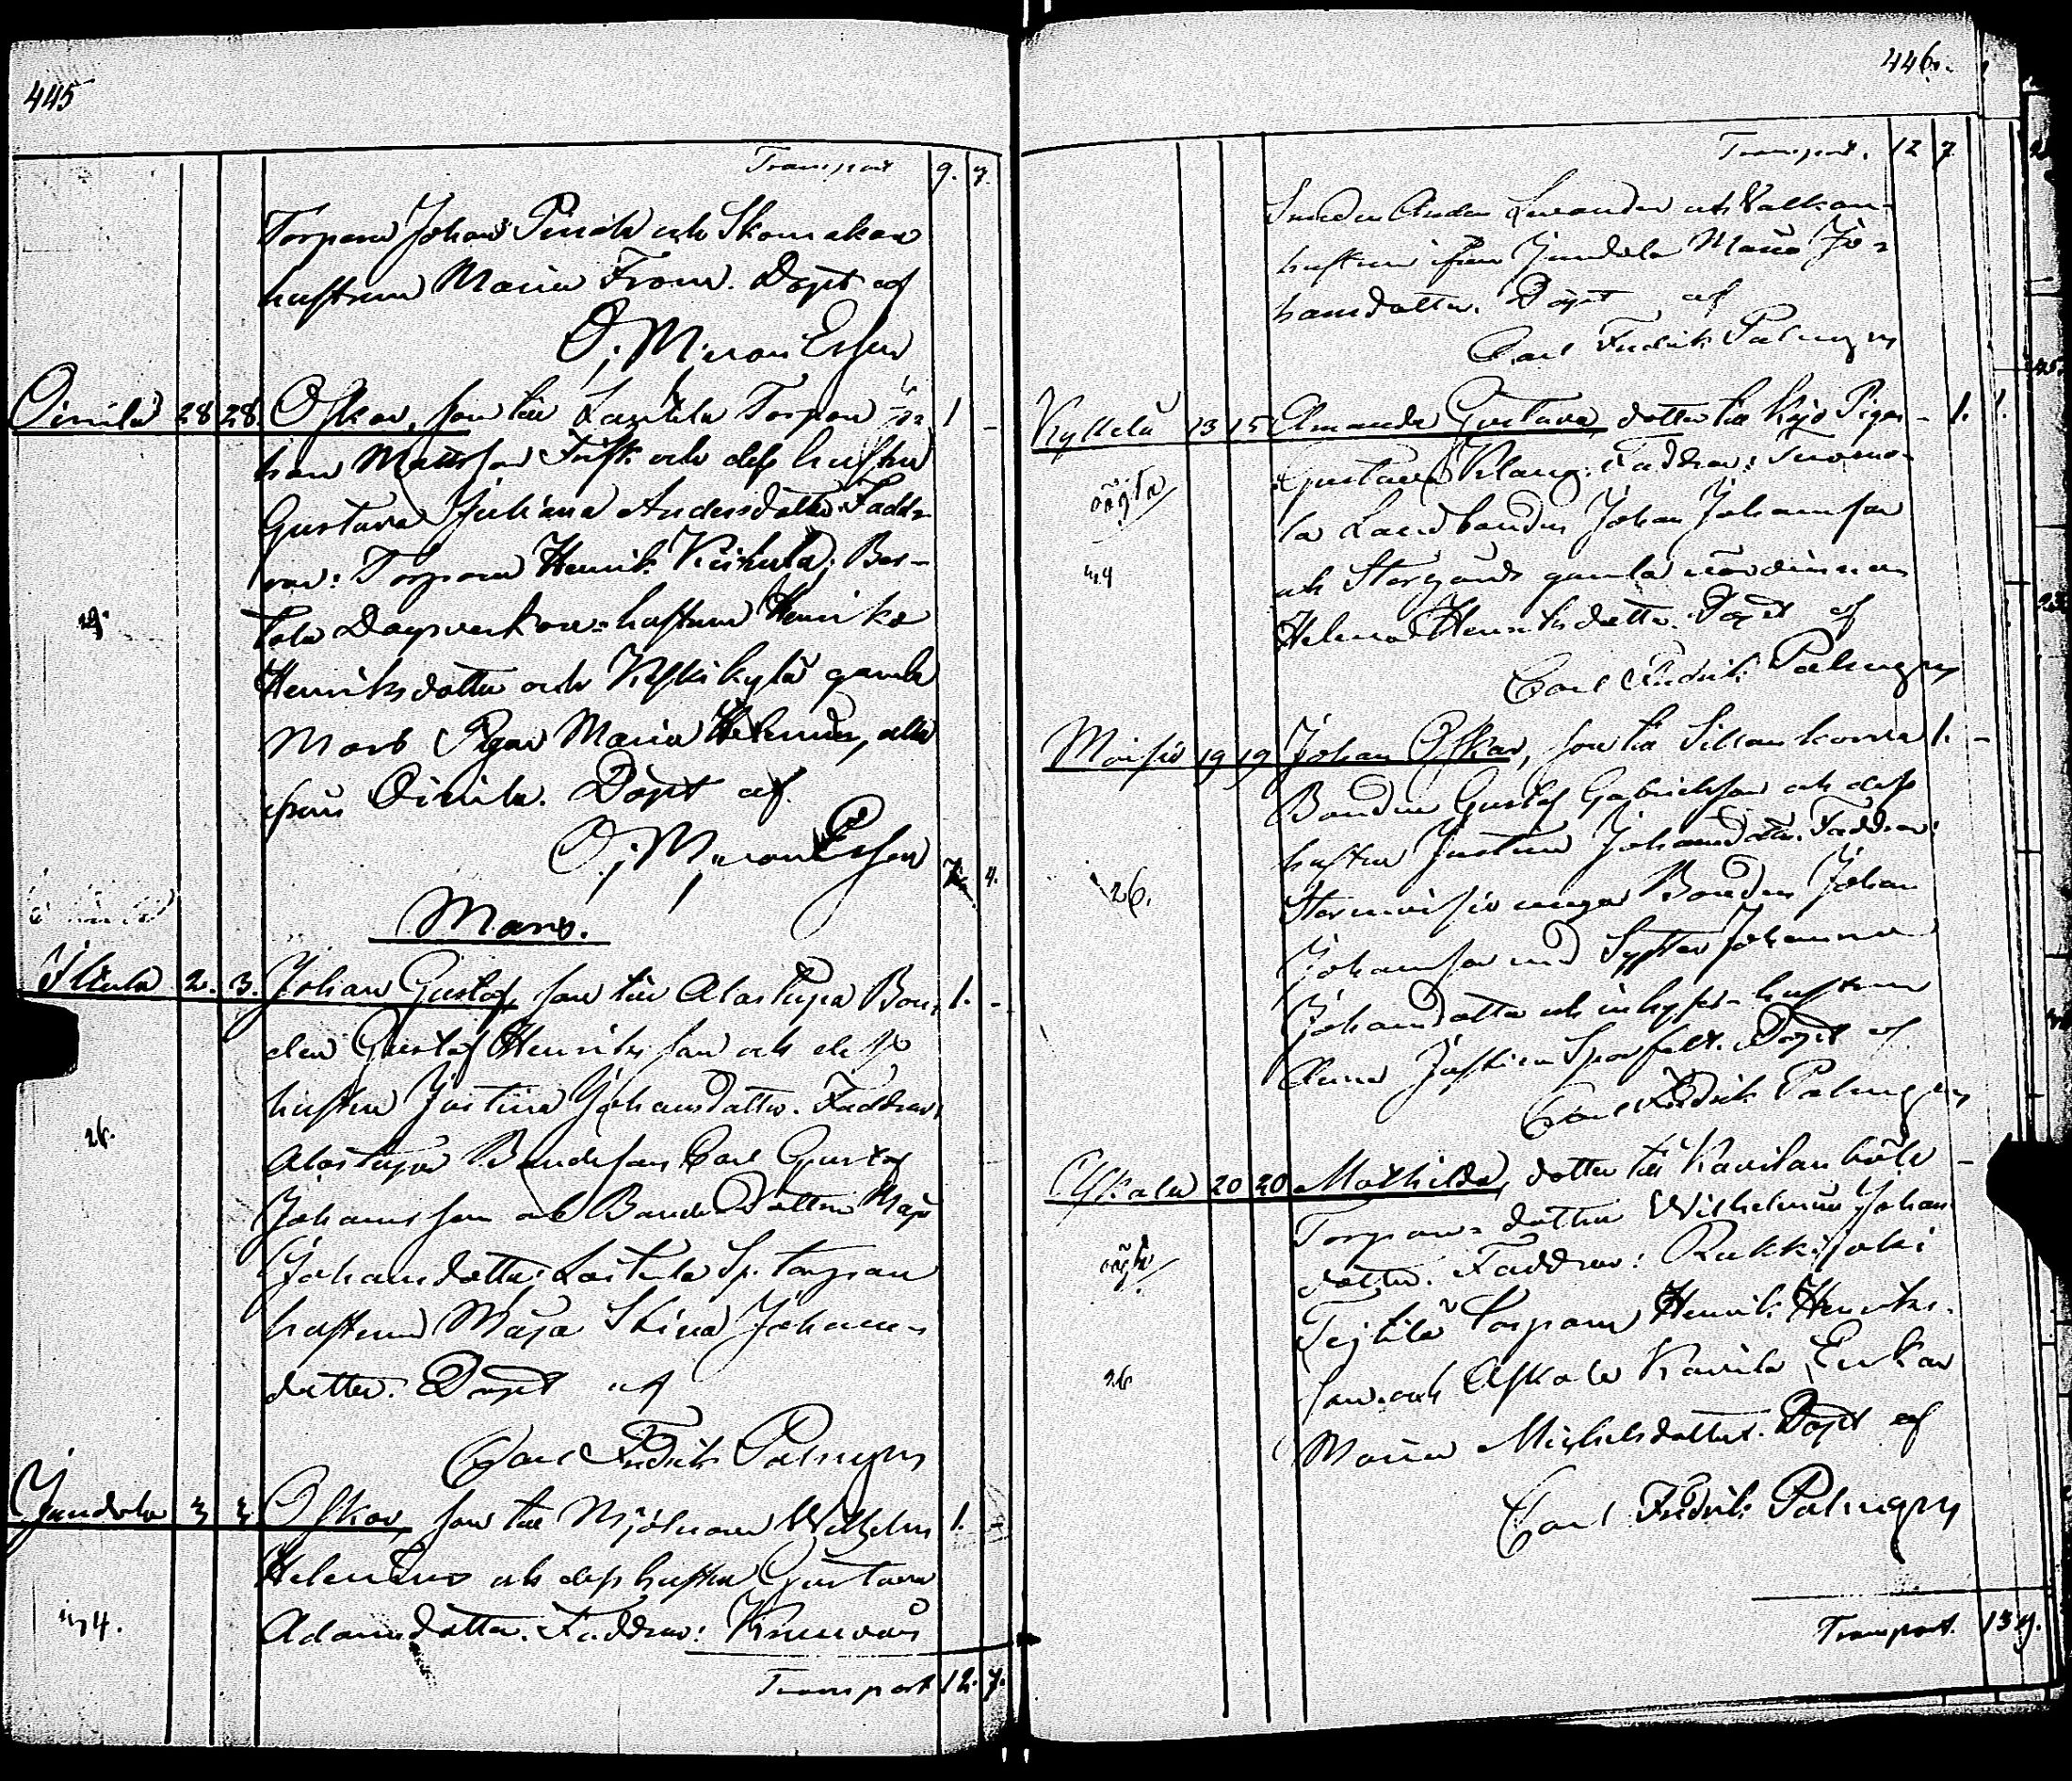 445
Transport 9. 7.
Torparen Johan och Skomakare
hustrun Maria From. Döpt af
O. M. von Essen
Oinila 28 28. Oskar, son till Lanttila Torparen Jo= 1 -
han Mattsson Frisk och dess hustru
Gustava Juliana Andersdotter. Faddr-
rar: Torparen Henrik; Bar-
tola Dagsverkare=hustrun Henrika
Henriksdotter och Keskikylä gamla
Mors Pigan Maria, alla
ifrån Oinila. Döpt af
O. M. von Essen
4.
Mars.
2. 3. Johan Gustaf, son till Alastupa Bon= 1. -
den Gustaf Henriksson och dess
hustru Justina Johansdotter. Faddrar:
Alastupa Bondeson Carl Gustaf
Johansson och Bondedottren Maja
Johansdotter, Sp. torpare
hustrun Maja Stina Johans=
dotter. Döpt af
Carl Fredrik Palmgren
Jundola 3 3 Oskar, son till Mjölnaren Wilhelm 1. -
Helenius och dess hustru Gustava
Adamsdotter. Faddrar:
Transport 12. 7.
446.
Transport. 12 7
Smeden Anders Levander och Valkar=
hustrun ifrån Jundola Maria Jo=
hansdotter. Döpt af
Carl Fredrik Palmgren
Kyttelä 13 15 Amanda Gustava, dotter till Röjo Pigan - 1. 1.
Gustava Klang. Faddrar: Tuomo-
la Landbonden Johan Johansson
och Storgårds gamla värdinnan
Helena Henriksdotter. Döpt af
Carl Fredrik Palmgren
Moisio 19 19 Johan Oskar, son till Sillankorva 1. -
Bonden Gustaf Gabrielsson och dess
hustru Justina Johansdotter. Faddrar:
Stormoisio unga Bonden Johan
26.
Johansson med Syster Johanna
Johansdotter och inhyses-hustrun
Anna Justina Sporfelt. Döpt af
Carl Fredrik Palmgren
Askala 20 20 Mathilda, dotter till Kavilan böle -
Torpare=dotter Wilhelmina Johans
oägta
dotter. Faddrar:
Torparen Henrik Henriks-
26
son och Askala Kavila Enkan
Maria Michelsdotter. Döpt af
Carl Fredrik Palmgren
Transport. 13 9.